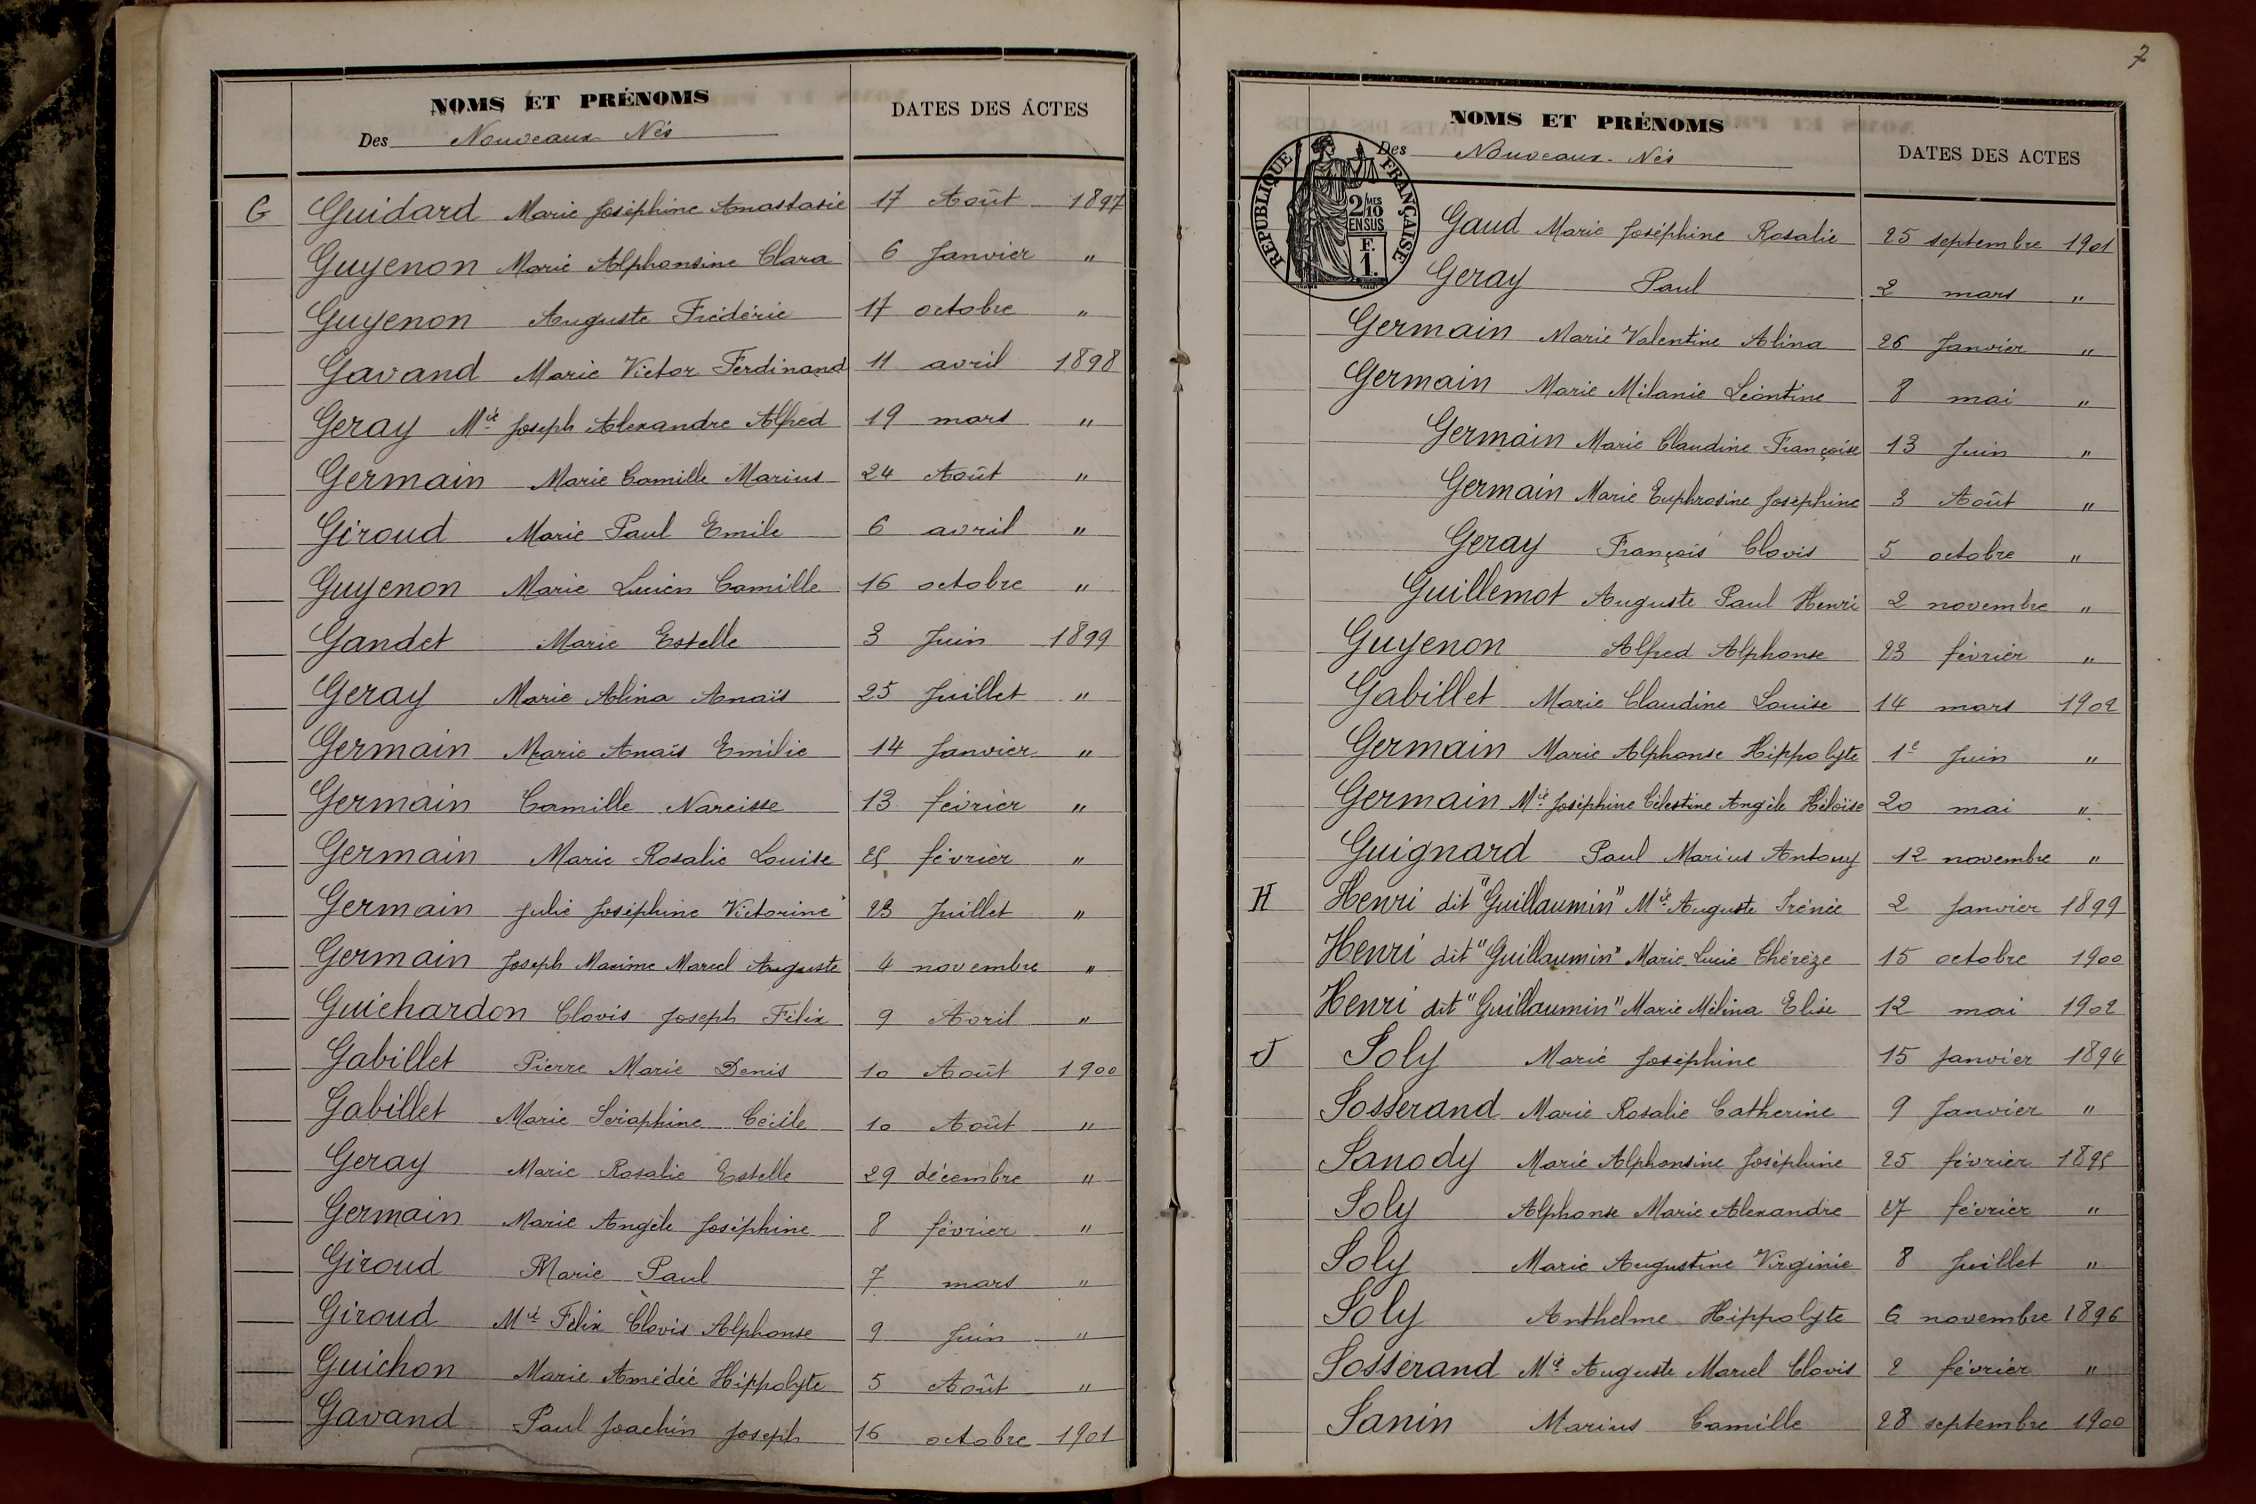 NOMS ET PRÉNOMS
Des Nouveaux Nés
DATES DES ACTES
G Guidard Marie Joséphine Anastasie 17 Août 1897
Guyenon Marie Alphonsine Clara 6 Janvier "
Guyenon Auguste Frédéric 17 octobre "
Gavand Marie Victor Ferdinand 11 avril 1898
Geray Mie Joseph Alexandre Alfred 19 mars "
Germain Marie Camille Marius 24 Août "
Giroud Marie Paul Emile 6 avril "
Guyenon Marie Lucien Camille 16 octobre "
Gandet Marie Estelle 3 Juin 1899
Geray Marie Alina Anaïs 25 Juillet "
Germain Marie Anaïs Emilie 14 Janvier "
Germain Camille Narcisse 13 février "
Germain Marie Rosalie Louise 25 février "
Germain Julie Joséphine Victorine 23 Juillet "
Germain Joseph Maxime Marcel Auguste 4 novembre "
Guichardon Clovis Joseph Félix 9 Avril "
Gabillet Pierre Marie Denis 10 Août 1900
Gabillet Marie Séraphine Cécile 10 Août "
Geray Marie Rosalie Estelle 29 décembre "
Germain Marie Angèle Joséphine 8 février "
Giroud Marie Paul 7 mars "
Giroud Mie Félix Clovis Alphonse 9 Juin "
Guichon Marie Amédée Hippolyte 5 Août "
Gavand Paul Joachin Joseph 16 octobre 1901
7
NOMS ET PRÉNOMS
Des Nouveaux-Nés
DATES DES ACTES
RÉPUBLIQUE FRANÇAISE
2 MES
10
EN SUS
F.
1.
Gaud Marie Joséphine Rosalie 25 septembre 1901
Geray Paul 2 mars "
Germain Marie Valentine Alina 26 Janvier "
Germain Marie Mélanie Léontine 8 mai "
Germain Marie Claudine Françoise 13 Juin "
Germain Marie Euphrosine Joséphine 3 Août "
Geray François Clovis 5 octobre "
Guillemot Auguste Paul Henri 2 novembre "
Guyenon Alfred Alphonse 23 février "
Gabillet Marie Claudine Louise 14 mars 1902
Germain Marie Alphonse Hippolyte 1e Juin "
Germain Mie Joséphine Célestine Angèle Héloïse 20 mai "
Guignard Paul Marius Antony 12 novembre "
H Henri dit "Guillaumin" Mie Auguste Irénée 2 Janvier 1899
Henri dit "Guillaumin" Marie Lucie Thérèze 15 octobre 1900
Henri dit "Guillaumin" Marie Mélina Elise 12 mai 1902
J Joly Marie Joséphine 15 Janvier 1894
Josserand Marie Rosalie Catherine 9 Janvier "
Janody Marie Alphonsine Joséphine 25 février 1895
Joly Alphonse Marie Alexandre 27 février "
Joly Marie Augustine Virginie 8 Juillet "
Joly Anthelme Hippolyte 6 novembre 1896
Josserand Mie Auguste Marcel Clovis 2 février "
Janin Marius Camille 28 septembre 1900